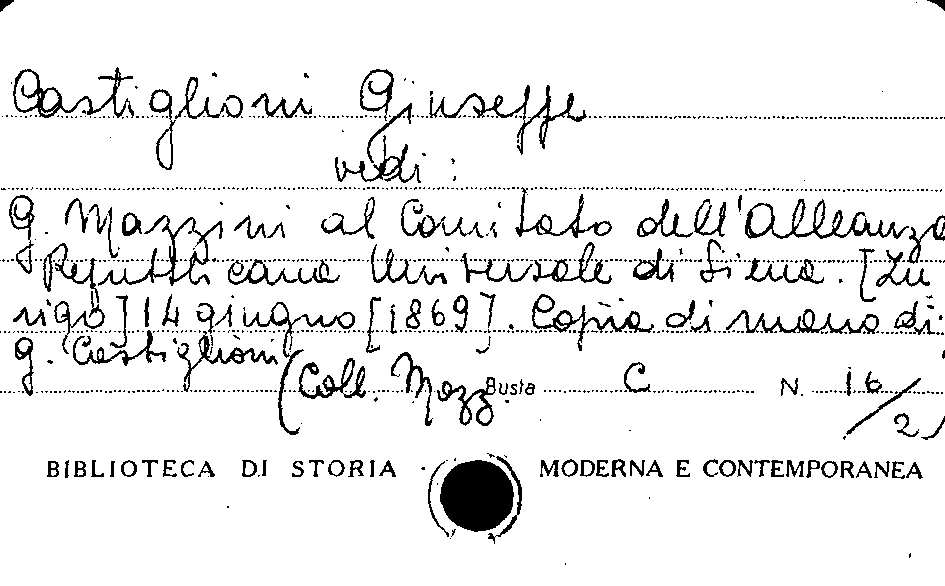 Castiglioni Giuseppe
vedi:
G. Mazzini al Comitato dell'Alleanza
Repubblicana Universale di Siena. [Zu
rigo] 14 giugno [1869]. Copia di mano di
G. Castiglioni
(Coll. Mazz. Busta C N. 16/2)
BIBLIOTECA DI STORIA MODERNA E CONTEMPORANEA